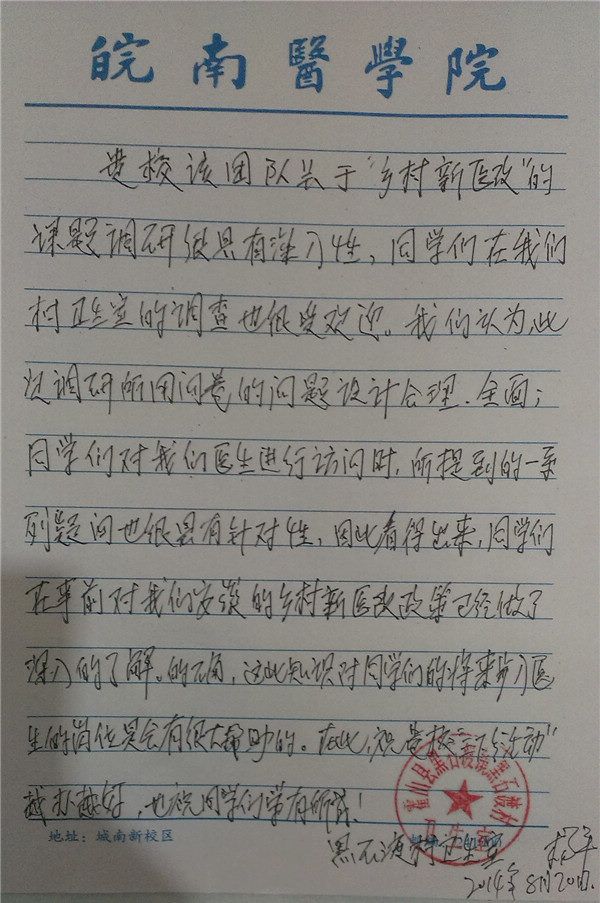 皖南醫學院
贵校该团队关于“乡村新医改”的
课题调研很具有深入性，同学们在我们
村卫生室的调查也很受欢迎。我们认为此
次调研所用问卷的问题设计合理、全面；
同学们对我们医生进行访问时，所提到的一系
列疑问也很具有针对性，因此看得出来，同学们
在事前对我们安徽的乡村新医改政策已经做了
深入的了解。的确，这些知识对同学们的将来步入医
生的岗位是会有很大帮助的。在此，祝贵校“三下乡活动”
越办越好，也祝同学们学有所成！
地址：城南新校区
霍山县黑石渡镇黑石渡村
黑石渡村卫生室
2014年8月20日.